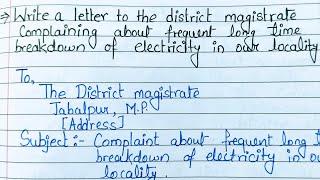 → Write a letter to the district magistrate
Complaining about frequent long time
breakdown of electricity in our locality
To,
The District magistrate
Jabalpur, M.P.
[Address]
Subject:- Complaint about frequent long
breakdown of electricity in
locality.